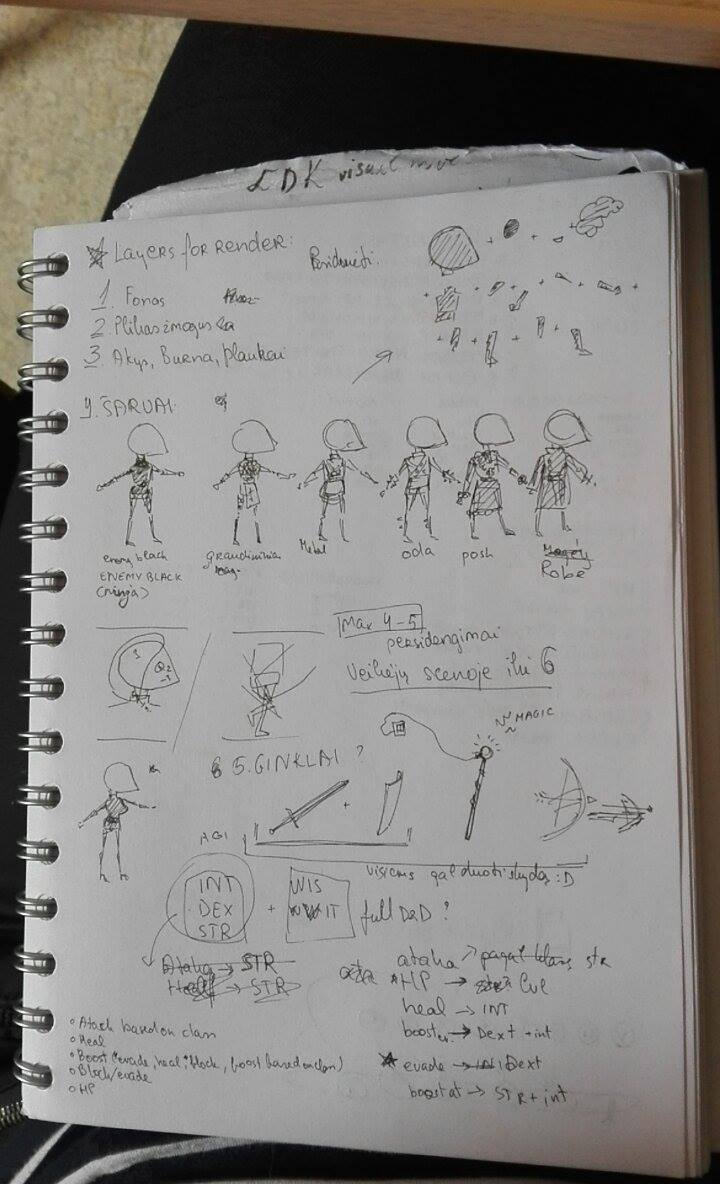 LDK visual
Layers for render:
1. Fonas
2. Plikas žmogus
3. Akys, Burna, plaukai
4. ŠARVAI
enemy black
ENEMY BLACK
(ninja)
Metal
oda
posh
Robe
Max 4-5
persidengimai
Veikėjų scenoje iki 6
MAGIC
5. GINKLAI ?
AGI
visiems gal duoti skydas :D
INT
DEX
STR
+
WIS
WIT
full D&D ?
Ataka → STR
Heal → STR
ataka → pagal klasę str
HP → Lvl
heal → INT
boost → Dext + int
evade → INT Dext
boost at → STR + int
Atack based on clan
Heal
Boost (evade, heal, block, boost based on clan)
Block/evade
HP